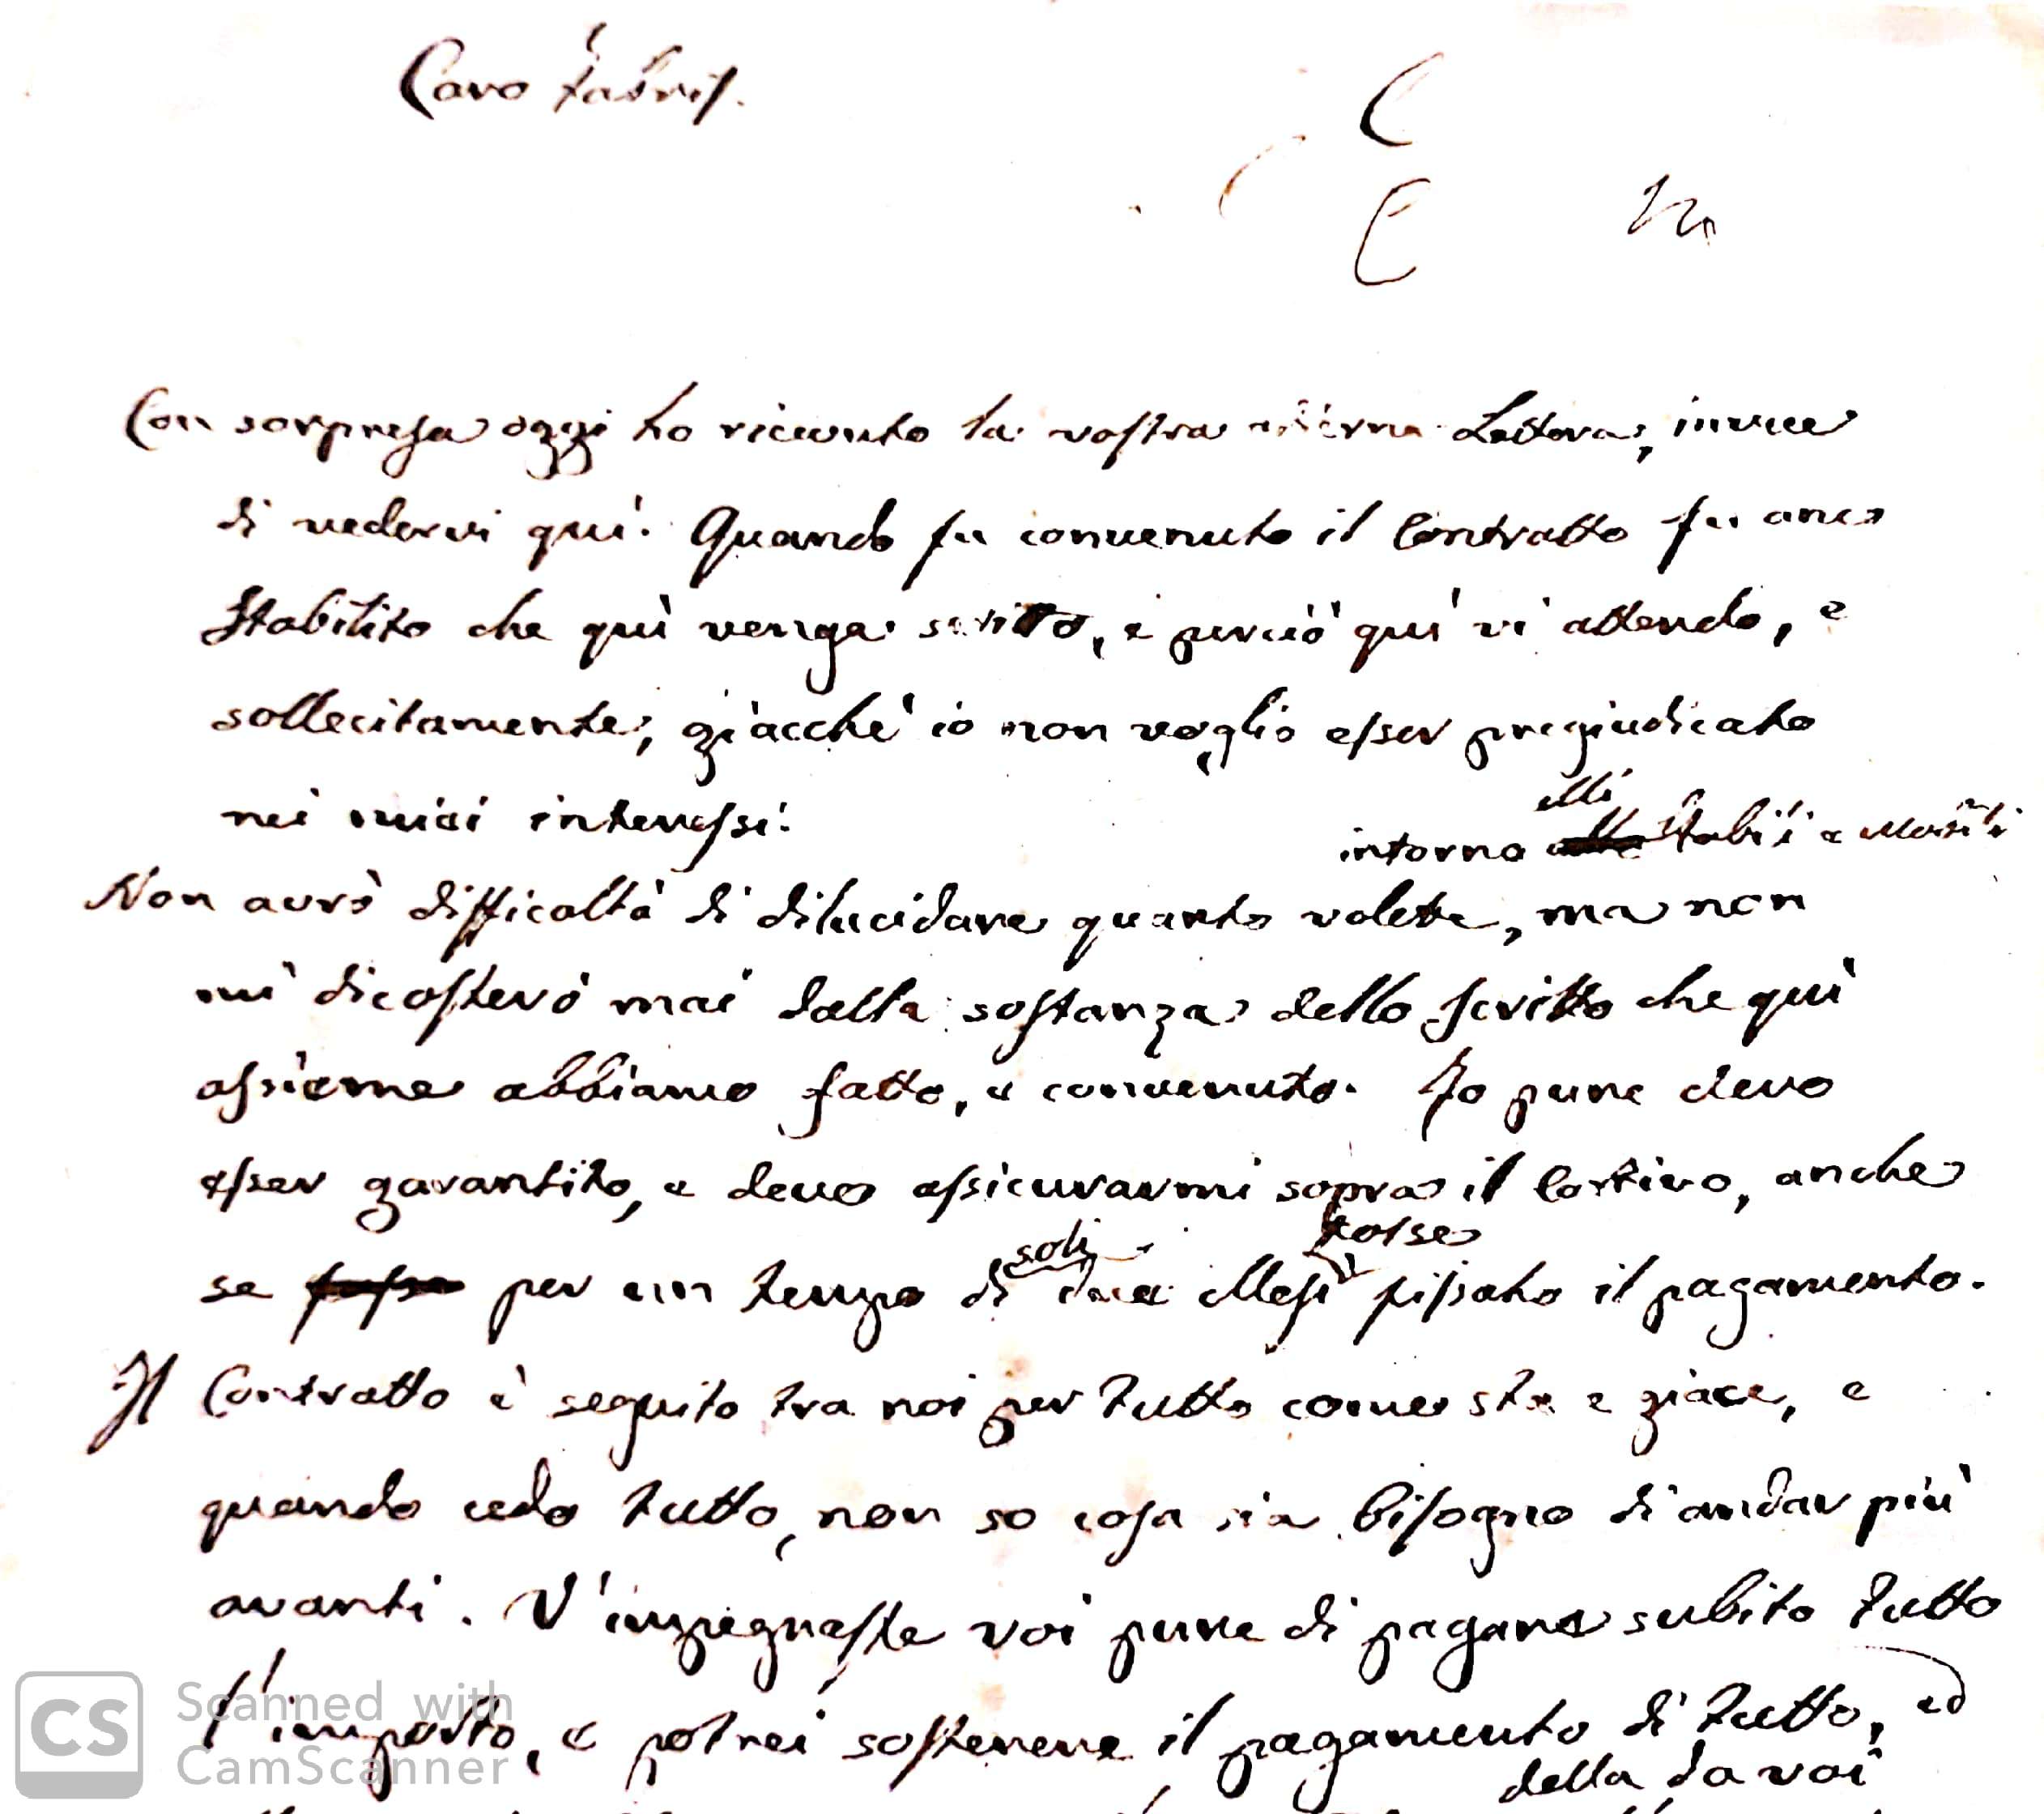 Caro Fabris.
Con sorpresa oggi ho ricevuto la vostra Lettera, invece
di vedervi quì. Quando fu convenuto il Contratto fu anco
Stabilito che quì venga scritto, e perciò quì vi attendo, e
sollecitamente, giacchè io non voglio esser pregiudicato
nei miei interessi.
intorno alli Stabili e Mobili
Non avrò difficoltà di dilucidare quanto volete, ma non
mi dicosterò mai dalla sostanza dello scritto che quì
assieme abbiamo fatto, e convenuto. Io pure devo
esser garantito, e devo assicurarmi sopra il, anche
soli forse
se fosse per un tempo di due Mesi fissato il pagamento.
Il Contratto è seguito tra noi per tutto come sta e giace, e
quando cedo tutto, non so cosa sia bisogno di andar più
avanti. V'impegnaste voi pure di pagare subito tutto
l'importo, e potrei sostenere il pagamento di tutto, ed
della da voi
CS Scanned with
CamScanner